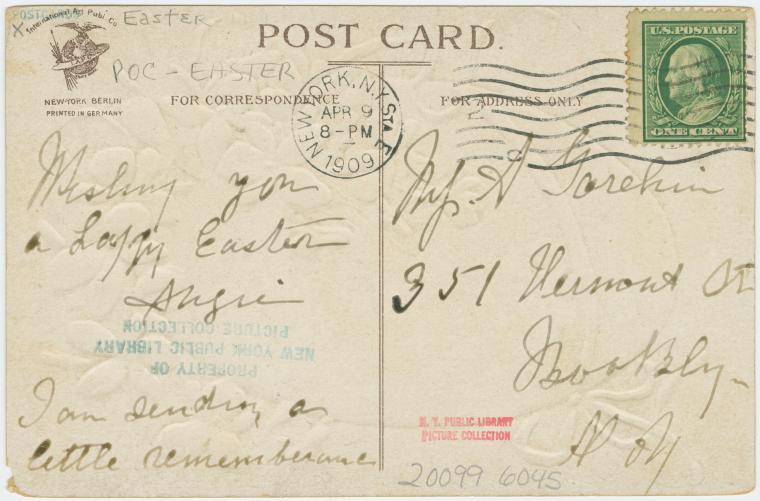 POSTCARDS
X
Easter
International Art Publ. Co
POST CARD.
POC - EASTER
NEW-YORK BERLIN
PRINTED IN GERMANY
FOR CORRESPONDENCE
FOR ADDRESS ONLY
NEW YORK, N.Y. STA E
APR 9
8-PM
1909
U.S. POSTAGE
ONE CENT
Wishing you
a happy Easter
Angie
PROPERTY OF
NEW YORK PUBLIC LIBRARY
PICTURE COLLECTION
I am sending a
little rememberance
A
351 Vermont St
Brooklyn
N Y
N. Y. PUBLIC LIBRARY
PICTURE COLLECTION
20099 6045